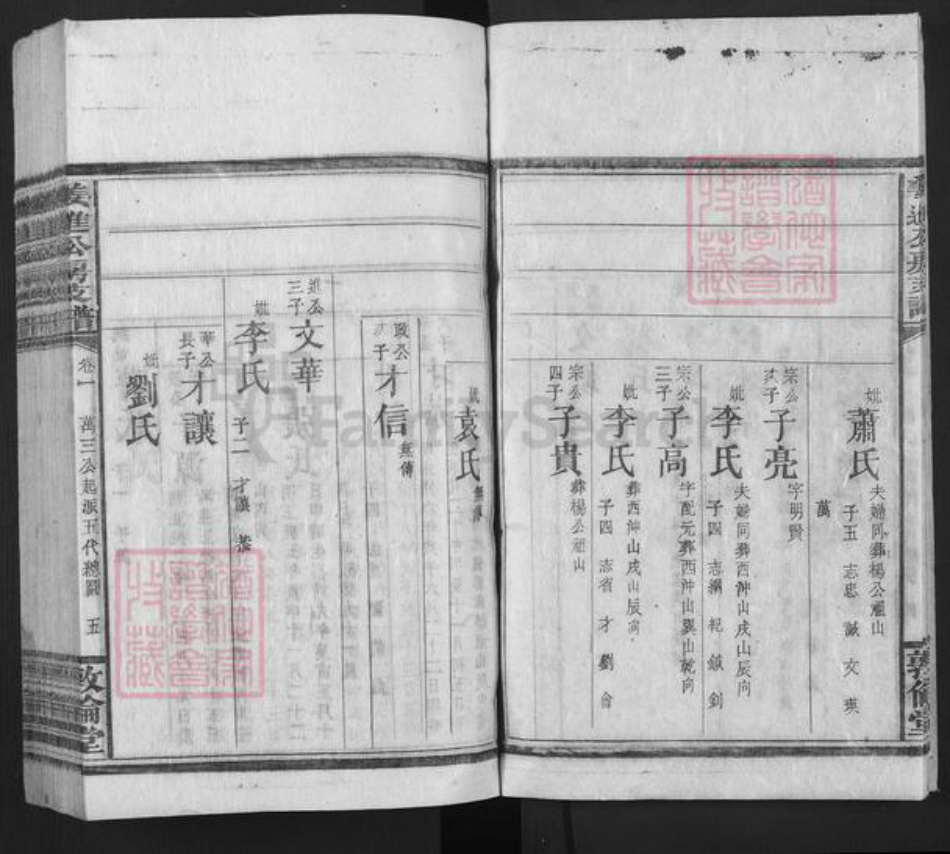 妣蕭氏
夫婦同葬楊公祖山
子五 志忠 誠 文 瑛
萬
宗公次子子亮
字明賢
妣李氏
夫婦同葬西沖山戌山辰向
子四 志綱 紀 鉞 釗
宗公三子子高
字配元葬西沖山巽山乾向
妣李氏
葬西沖山戌山辰向
子四 志省 才 劉
宗公四子子貴
葬楊公祖山
敦倫堂
妣袁氏
無傳
政公次子才信
無傳
進公三子文華
妣李氏
子二 才讓 恭
華公長子才讓
妣劉氏
進公房支譜
卷一
萬三公起派五代總圖
五
敦倫堂
道德家譜學會收藏
道德家譜學會收藏
FamilySearch